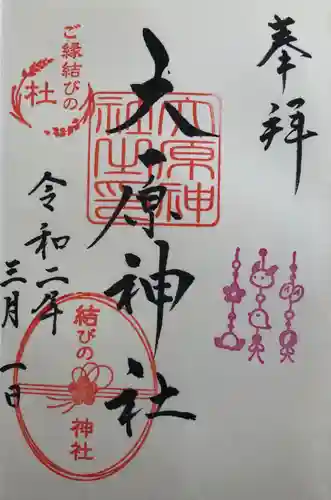 奉拝
大原神社
大原神
社之印
ご縁結びの
社
令和二年
三月一日
結びの
神社